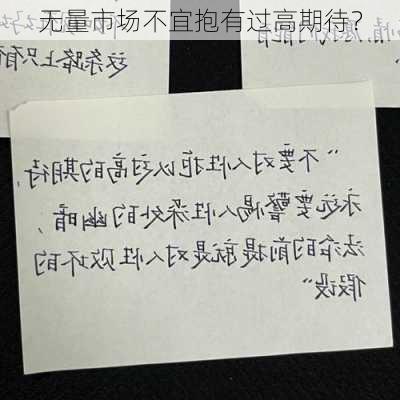 无量市场不宜抱有过高期待？
这条路上只有
“不要对人性抱以过高的期待，
永远要警惕人性深处的幽暗，
法治的前提就是对人性败坏的
假设”